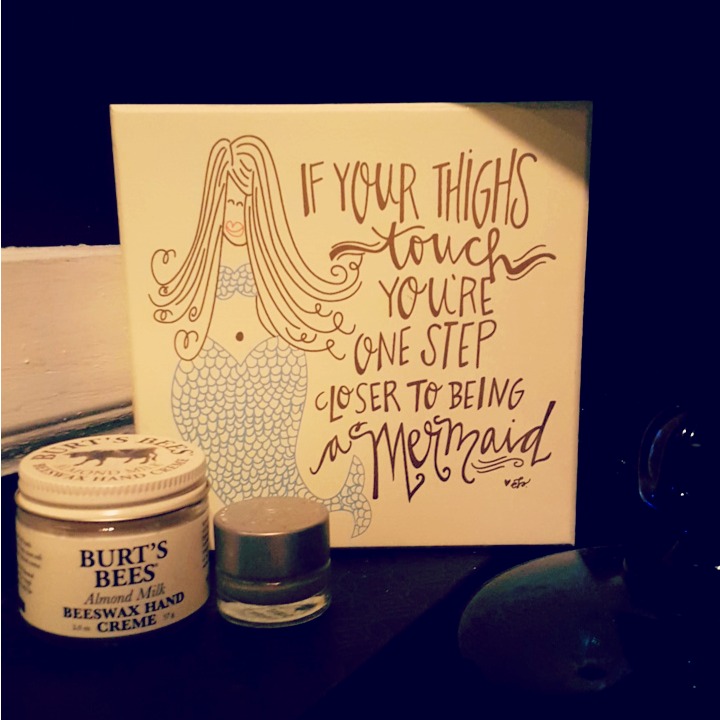 IF YOUR THIGHS
touch
YOU'RE
ONE STEP
CLOSER TO BEING
a Mermaid
BURT'S BEES
ALMOND MILK
BEESWAX HAND CREME
BURT'S
BEES
Almond Milk
BEESWAX HAND
CREME